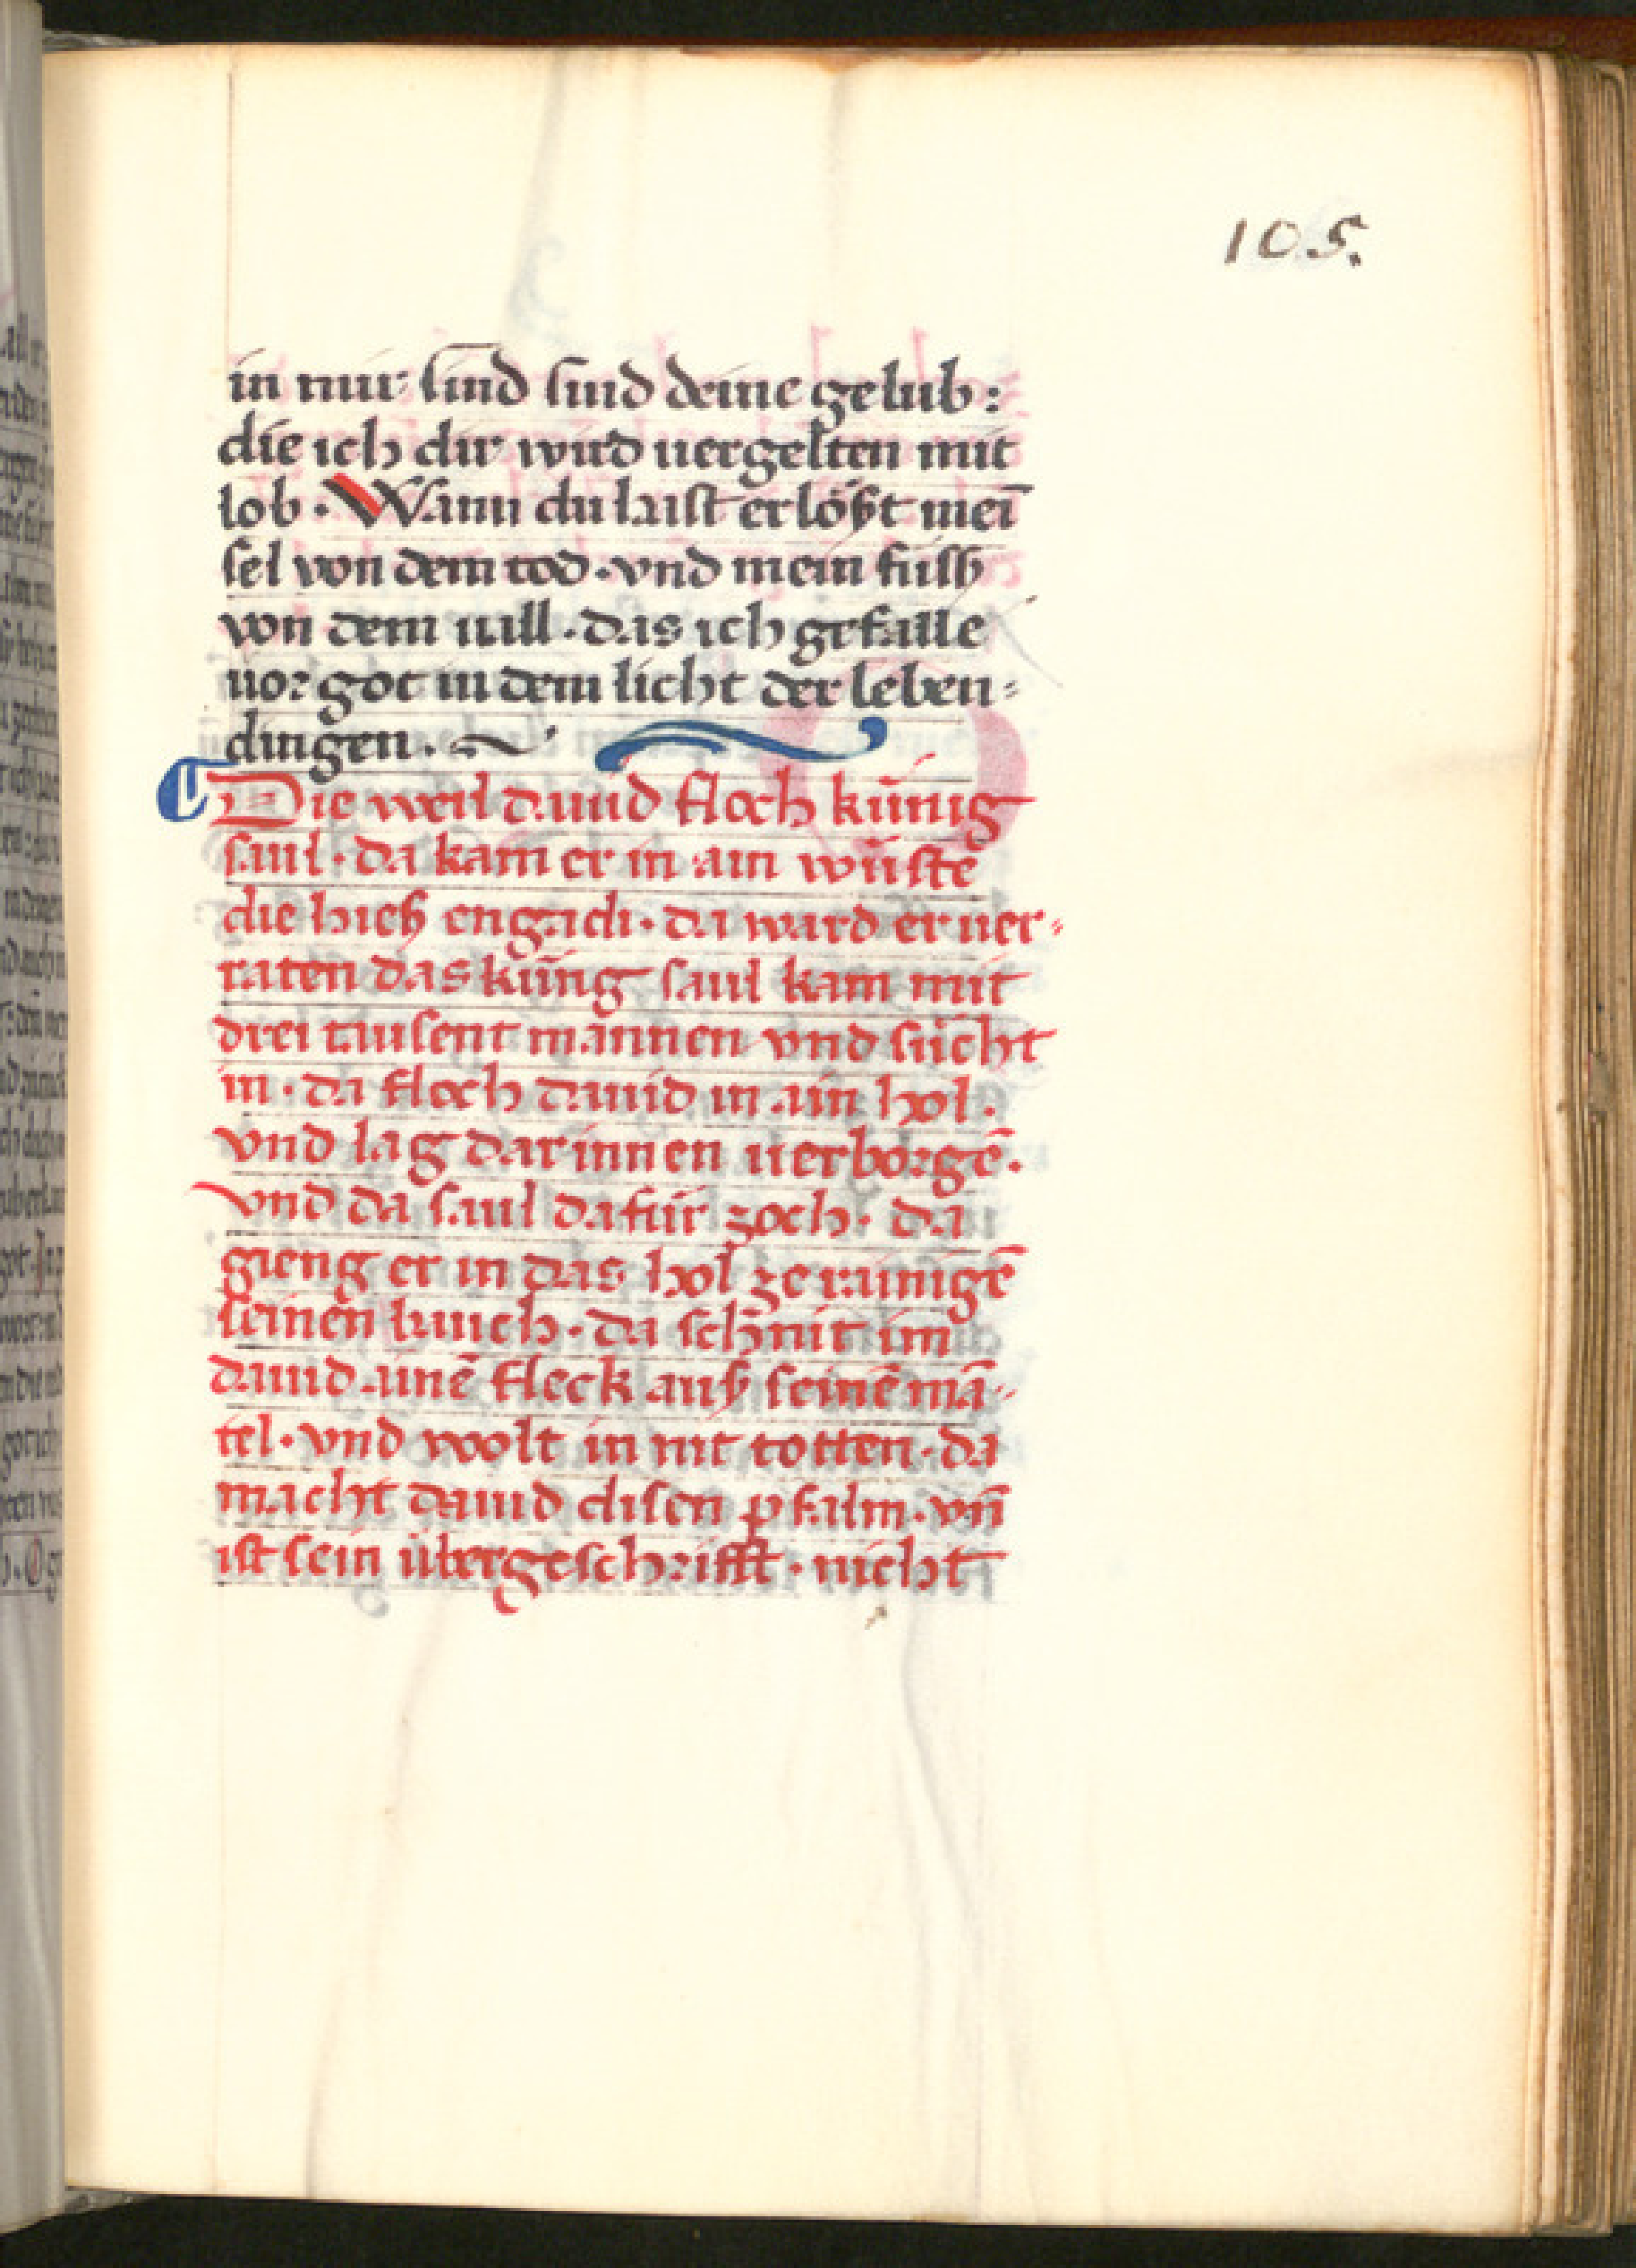 105.
in mir sind sind deine gelub:
die ich dir wird uergelten mit
lob · Wann du hast erlößt mei̅
sel von dem tod · vnd mein füss
von dem uall · das ich gefalle
uor got in dem licht der leben-
dingen ·
Die weil dauid floch künig
saul · da kam er in ain wüste
die hieß engadi · da ward er uer-
raten das küng saul kam mit
drei tausent mannen vnd sücht
in · da floch dauid in ain hol ·
vnd lag darinnen uerborge̅ ·
vnd da saul dafür zoch · da
gieng er in das hol ze rainige̅
seinen bauch · da schnit im
dauid aine̅ fleck auß seine̅ ma̅-
tel · vnd wolt in nit totten · da
macht dauid disen psalm · vn̅
ist sein übergeschrifft · nicht